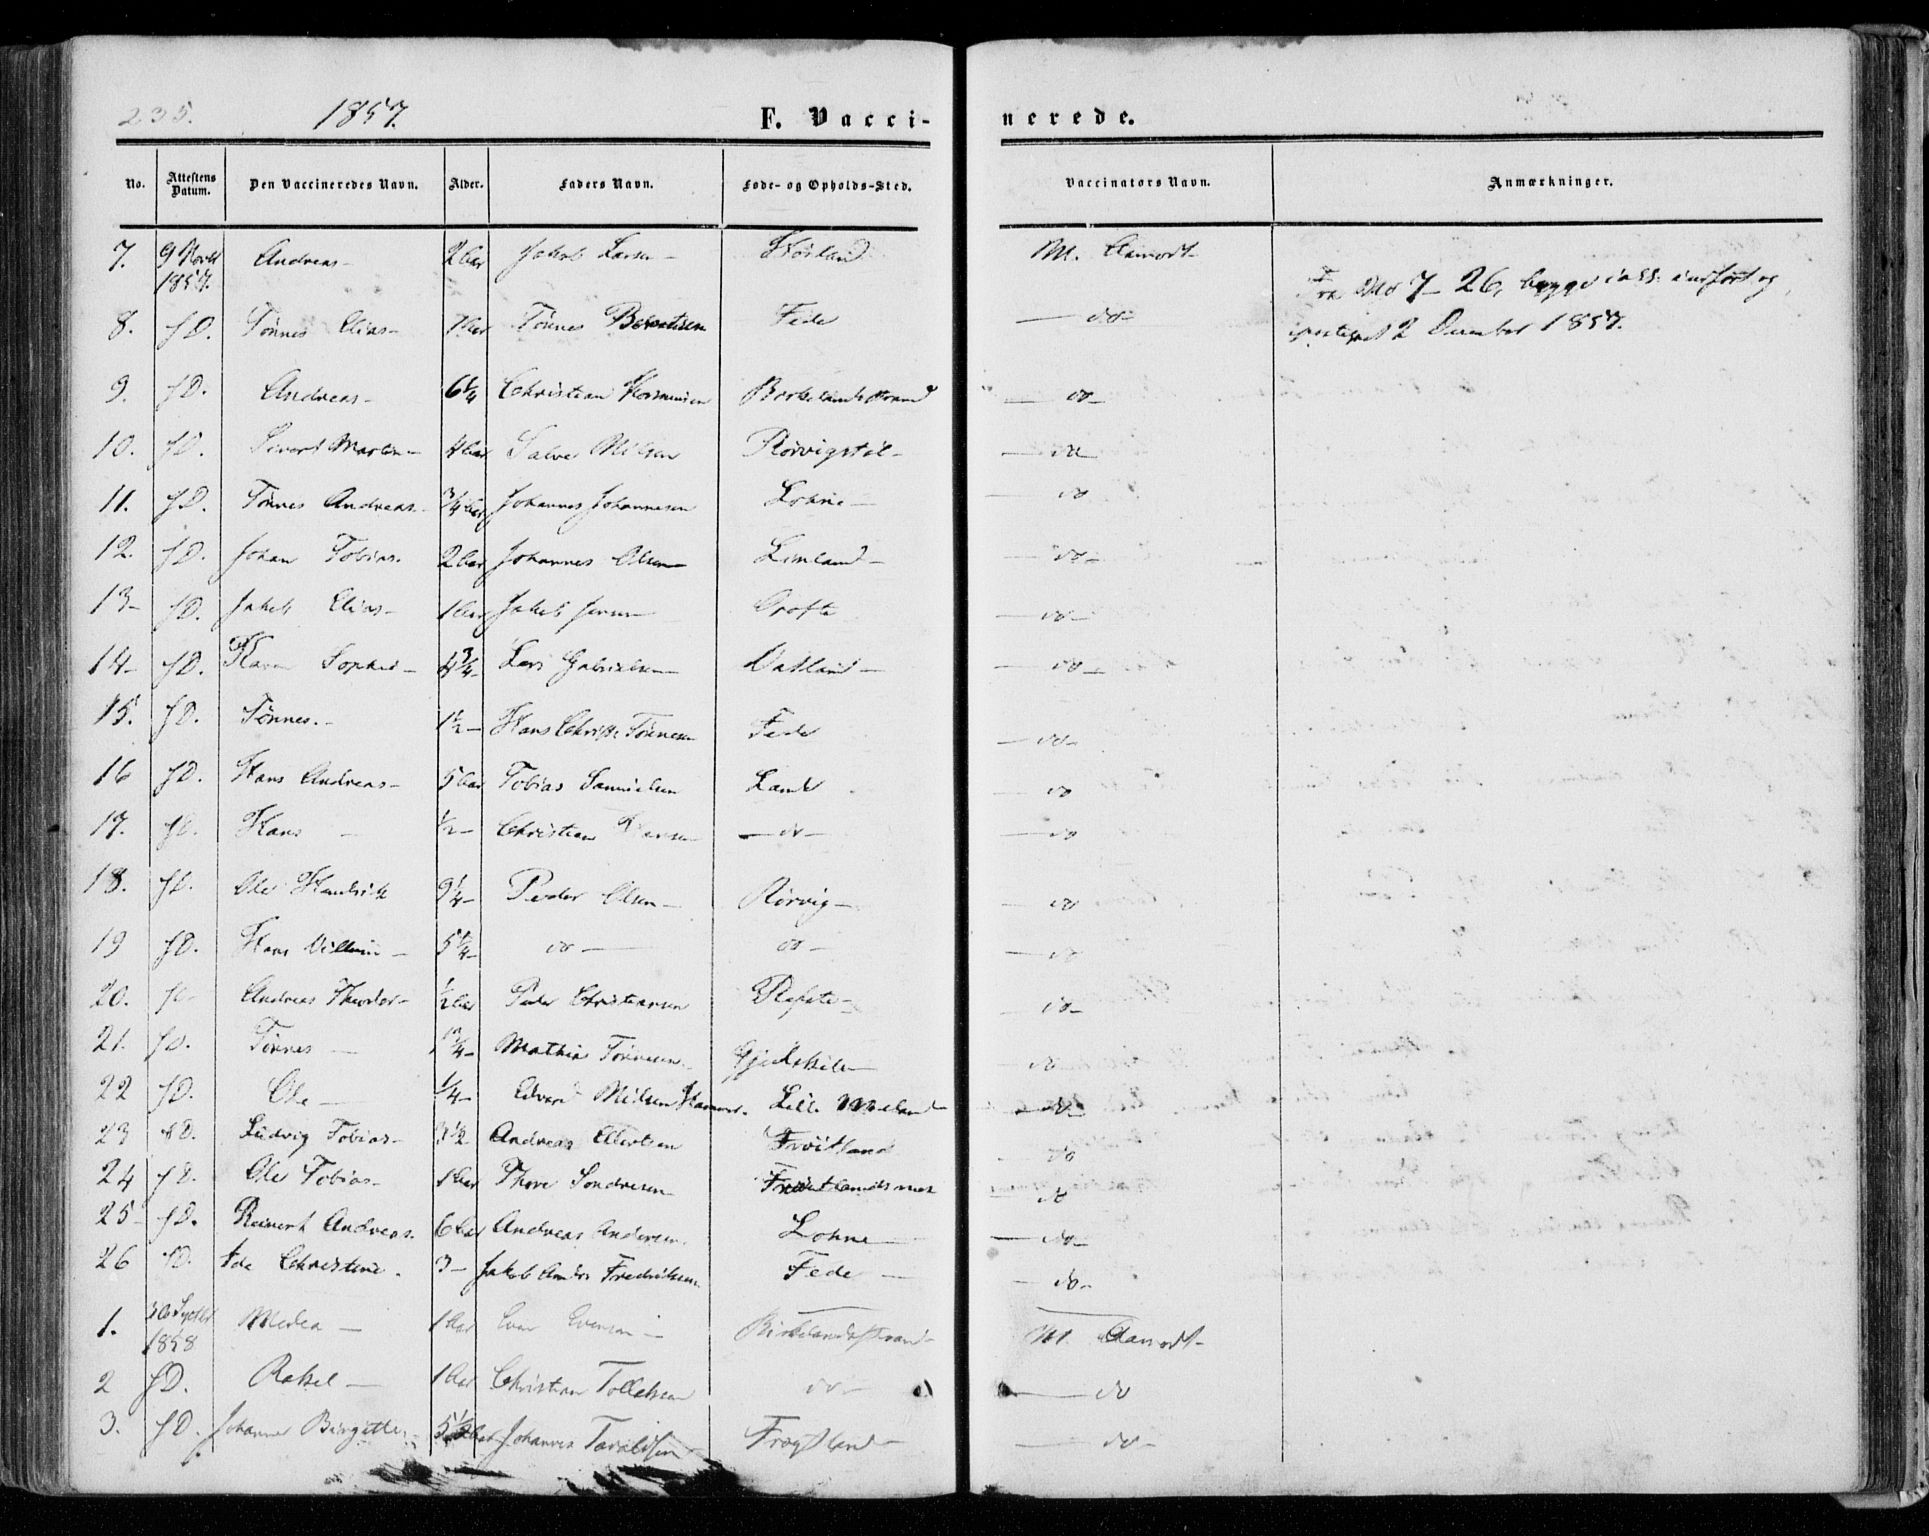 235. 1857. F. Vacci- nerede.
No. Attestens Datum. Den Vaccineredes Navn. Alder. Faders Navn. Føde- og Opholds-Sted. Vaccinators Navn. Anmærkninger.
7. 9 Novbr 1857. Andreas - 2 Aar Jakob Larsen - M. Aamodt
Fra No 7 - 26, begge incl. indført og
2 December 1857.
8. s. D. Tønnes Elias - Aar Tønnes Berentsen Fede do -
9. s. D. Andreas - 6 1/4 Christian Birkelandsstrand do -
10. s. D. Sivert Martin - 4 Aar Salve Nilsen Rørvigstøl - do
11. s. D. Tønnes Andreas - 3/4 Aar Johannes Johannesen Lohne - do
12. s. D. Johan Tobias. 2 Aar Johannes Olsen Limland - do -
13 - s. D. Jakob Elias - 1 Aar Jakob do -
14 - s. D. Karen Sophie - 4 3/4 - Lars Gabrielsen - Oatland - do -
15. s. D. Tønnes. - 1 1/2 - Hans Christ. Tønnesen Fede do -
16 s. D. Hans Andreas - 5 Aar Tobias Samuelsen Lande do
17. s. D. Hans - 1/2 - Christian Hansen - do - do
18. s. D. Ole Hendrik 9 1/4 - Peder Olsen - Rørvig - do
19 s. D. Hans Villum - 5 1/4 - do - do - do
20. s. D. Andreas Theodor - 1/2 Aar Peder Christiansen Rafste - do -
21. s. D. Tønnes - Mathias Tønnesen do
22 s. D. Ole - 1/4 - Edvard Nilsen Lille Meland do -
23 s. D. Ludvig Tobias - 3 1/2 Andreas Ellertsen Frøitland do
24 s. D. Ole Tobias - 1 Aar Thore Sondresen do
25 - s. D. Reinert Andreas. 6 Aar Andreas Andersen. Lohne - do -
26 s. D. Ide Christine. 3 - Jakob Andr Fredriksen Fede - do -
1. 1858 Medea - 1 Aar Even Evensen - Birkelandsstrand - M. Aamodt -
2 s. D. Rakel - 1 Aar Christian Tollaksen do - do
3. s. D. Johanne Birgitte 5 1/2 Aar Johannes Taraldsen Frøytland - do -